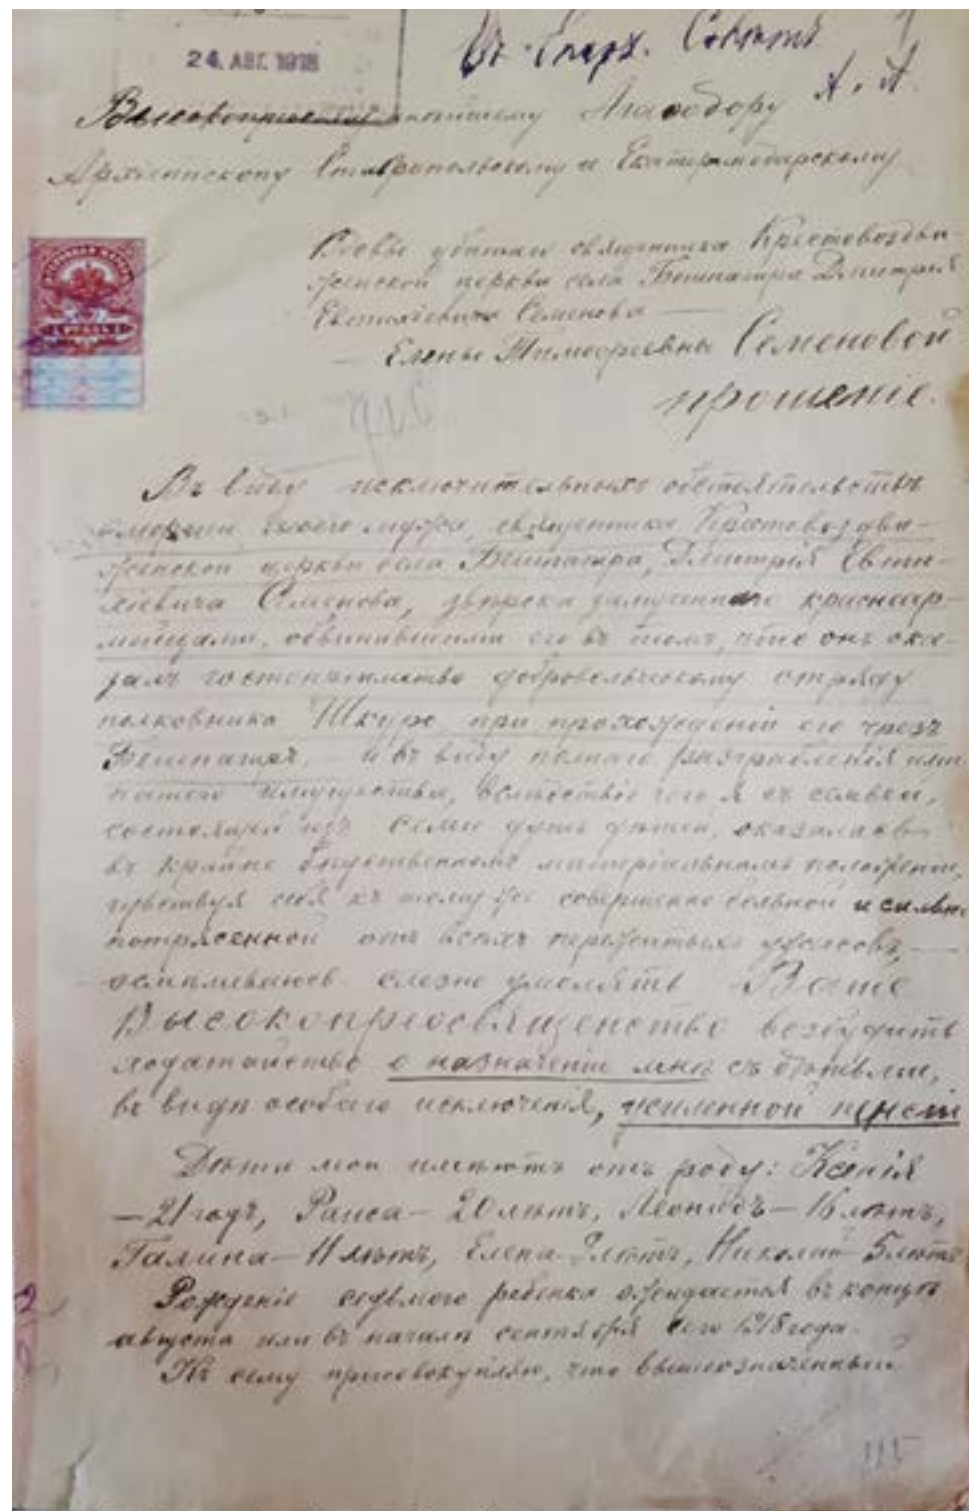 24. АВГ. 1918
Въ Епарх. Совѣтъ
А. А.
Высокопреосвященнѣйшему Агаѳодору
Архіепископу Ставропольскому и Екатеринодарскому
Вдовы убитаго священника Крестовоздви-
женской церкви села Бешпагира Димитрія
Евтихіевича Семенова —
— Елены Тимоѳеевны Семеновой
прошеніе.
Въ виду исключительныхъ обстоятельствъ
смерти моего мужа, священника Крестовоздви-
женской церкви села Бешпагира, Димитрія Евти-
хіевича Семенова, звѣрски замученнаго красноар-
мейцами, обвинившими его въ томъ, что онъ ока-
залъ гостепріимство добровольческому отряду
полковника Шкуро при прохожденіи его чрезъ
Бешпагиръ, — и въ виду полнаго разграбленія ими
нашего имущества, вслѣдствіе чего я съ семьей,
состоящей изъ семи душъ дѣтей, оказалась
въ крайне бѣдственномъ матеріальномъ положеніи,
чувствуя себя къ тому же совершенно больной и сильно
потрясенной отъ всѣхъ пережитыхъ ужасовъ, —
осмѣливаюсь слезно умолять Ваше
Высокопреосвященство возбудить
ходатайство о назначеніи мнѣ съ дѣтьми,
въ видѣ особаго исключенія, усиленной пенсіи
Дѣти мои имѣютъ отъ роду: Ксенія
— 21 годъ, Раиса — 20 лѣтъ, Леонидъ — 16 лѣтъ,
Галина — 11 лѣтъ, Елена лѣтъ, Николай 5 лѣтъ
Рожденіе седьмого ребенка ожидается въ концѣ
августа или въ началѣ сентября сего 1918 года.
Къ сему присовокупляю, что вышеозначенный
115